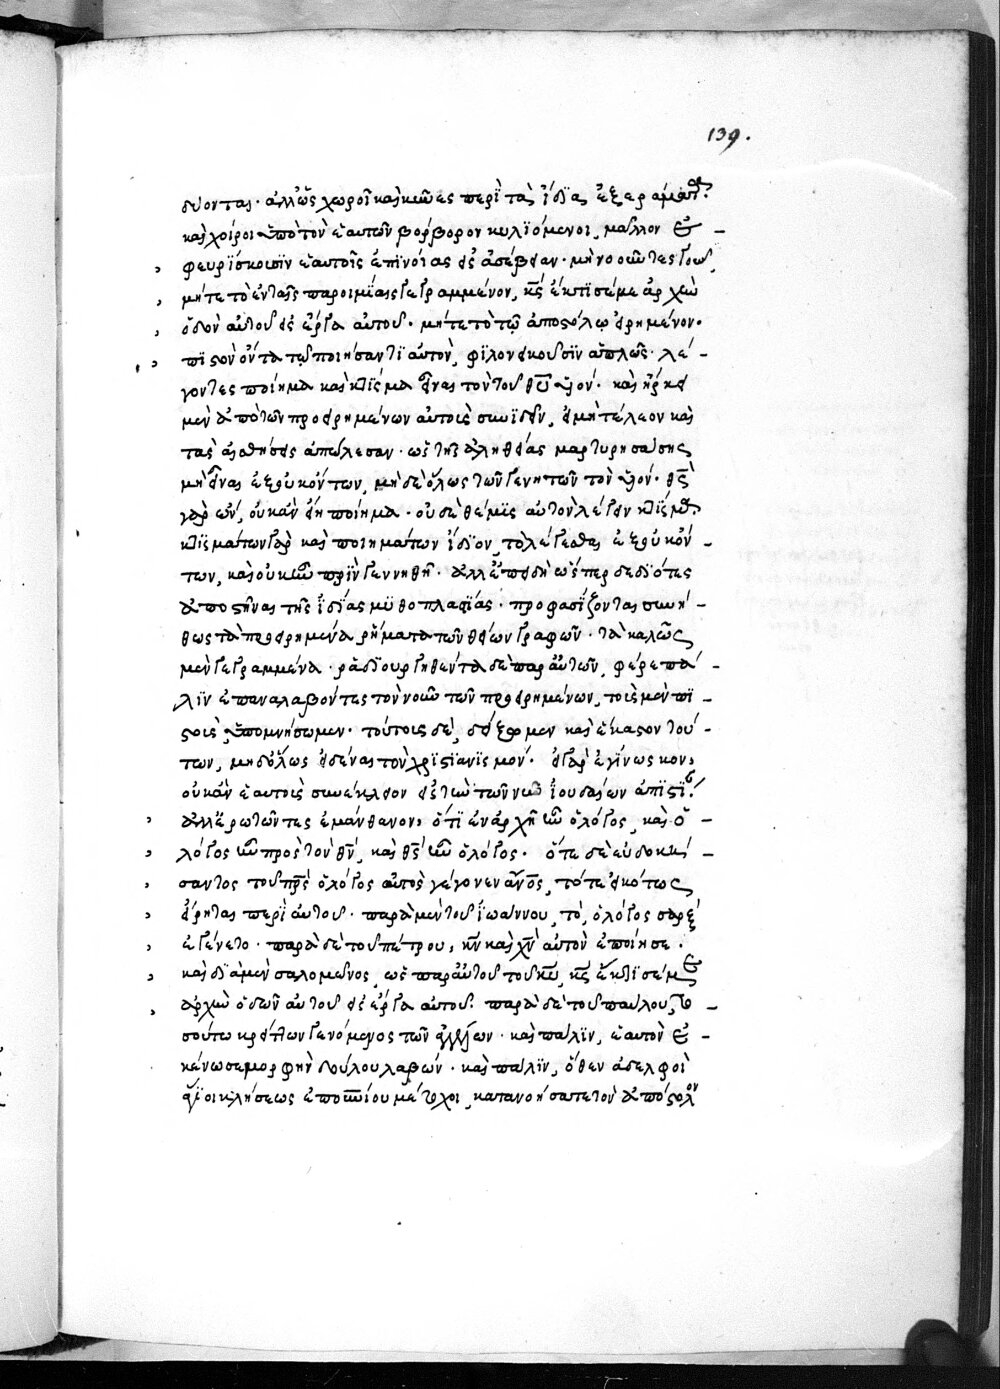 139.
δύοντας· ἀλλ' ὡς χοῖροι καὶ κύνες περὶ τὰ ἴδια ἐξεράματα,
καὶ χοῖροι ὑπὸ τὸν ἑαυτῶν βόρβορον κυλιόμενοι, μᾶλλον ἐ-
φευρίσκουσιν ἑαυτοῖς ἐπινοίας εἰς ἀσέβειαν· μὴ νοοῦντες γοῦν,
μήτε τὸ ἐν ταῖς παροιμίαις γεγραμμένον, κς ἔκτισέ με ἀρχὴν
ὁδὸν αὐτοῦ εἰς ἔργα αὐτοῦ. μήτε τὸ τῷ ἀποστόλῳ εἰρημένον.
πιστὸν ὄντα τῷ ποιήσαντι αὐτὸν, φιλονεικοῦσιν ἁπλῶς· λέ-
γοντες ποίημα καὶ κτίσμα εἶναι τὸν τοῦ θυ υἱόν· καὶ ἤρκει
μὲν ἀπὸ τῶν προειρημένων αὐτοῖς συνιδεῖν, εἰ μὴ τέλεον καὶ
τὰς αἰσθήσεις ἀπώλεσαν· ὡς τῆς ἀληθείας μαρτυρησάσης
μὴ εἶναι ἐξ οὐκ ὄντων, μηδὲ ὅλως τῶν γενητῶν τὸν υἱόν· θς
γὰρ ὢν, οὐκ ἂν εἴη ποίημα· οὐδὲ θέμις αὐτὸν λέγειν κτίσμα·
κτισμάτων γὰρ καὶ ποιημάτων ἴδιον, τὸ λέγεσθαι ἐξ οὐκ ὄν-
των, καὶ οὐκ ἦν πρὶν γεννηθῇ· ἀλλ' ἐπειδὴ ὥσπερ δεδιότες
ἀποστῆναι τῆς ἰδίας μυθοπλαστίας· προφασίζονται συνή-
θως τὰ προειρημένα ῥήματα τῶν θείων γραφῶν· τὰ καλῶς
μὲν γεγραμμένα· ῥᾳδιουργηθέντα δὲ παρ' αὐτῶν, φέρε πά-
λιν ἐπαναλαβόντες τὸν νοῦν τῶν προειρημένων, τοῖς μὲν πι-
στοῖς ὑπομνήσωμεν· τούτοις δὲ, δείξωμεν καὶ ἐκάστου τού-
των, μηδόλως εἰδέναι τὸν χριστιανισμόν· εἰ γὰρ ἐγίνωσκον,
οὐκ ἂν ἑαυτοὺς συνέκλειον εἰς τὴν τῶν νῦν ἰουδαίων ἀπιστίαν·
ἀλλ' ἐρωτῶντες ἐμάνθανον, ὅτι ἐν ἀρχῇ ἦν ὁ λόγος, καὶ ὁ
λόγος ἦν πρὸς τὸν θν, καὶ θς ἦν ὁ λόγος. ὅτε δὲ εὐδοκή-
σαντος τοῦ πρς ὁ λόγος αὐτὸς γέγονεν ανος, τότε εἰκότως
εἴρηται περὶ αὐτοῦ· παρὰ μὲν τοῦ ἰωάννου, τὸ, ὁ λόγος σὰρξ
ἐγένετο· παρὰ δὲ τοῦ πέτρου, κν καὶ χν αὐτὸν ἐποίησε·
καὶ διὰ μὲν σαλομῶνος, ὡς παρ' αὐτοῦ τοῦ κυ, κς ἔκτισέ με
ἀρχὴν ὁδῶν αὐτοῦ εἰς ἔργα αὐτοῦ· παρὰ δὲ τοῦ παύλου, το-
σούτῳ κρείττων γενόμενος τῶν ἀγγέλων· καὶ πάλιν, ἑαυτὸν ἐ-
κένωσε μορφὴν δούλου λαβών· καὶ πάλιν, ὅθεν ἀδελφοὶ
ἅγιοι κλήσεως ἐπουρανίου μέτοχοι, κατανοήσατε τὸν ἀπόστολον